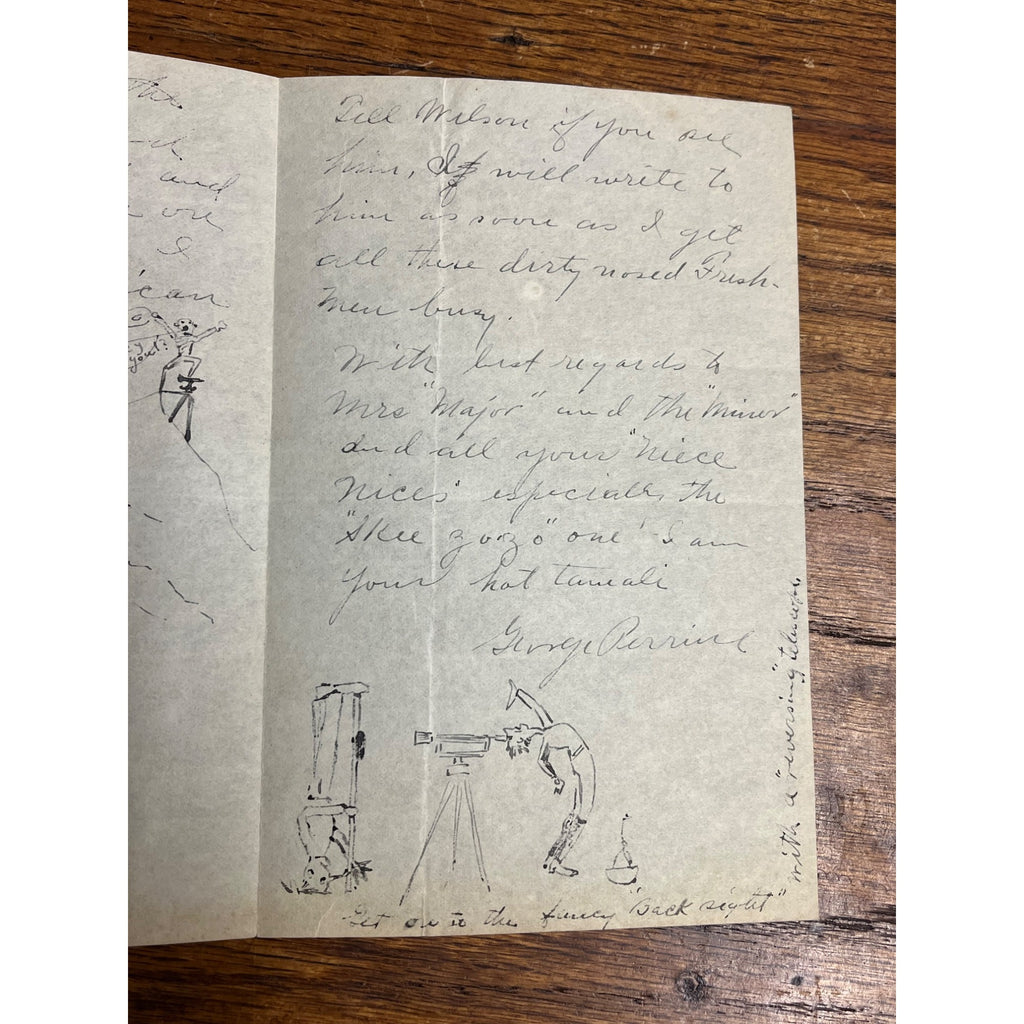 the
and
on
I
can
Tell Wilson if you see
him, I will write to
him as soon as I get
all these dirty nosed Fresh-
men busy.
With best regards to
Mrs "Major" and the "Miner"
and all your "niece
nices" especially the
"Skee zo zo" one I am
Your hot tamali
George Perrine
Get on to the fancy "Back sight"
with a "reversing" telescope.